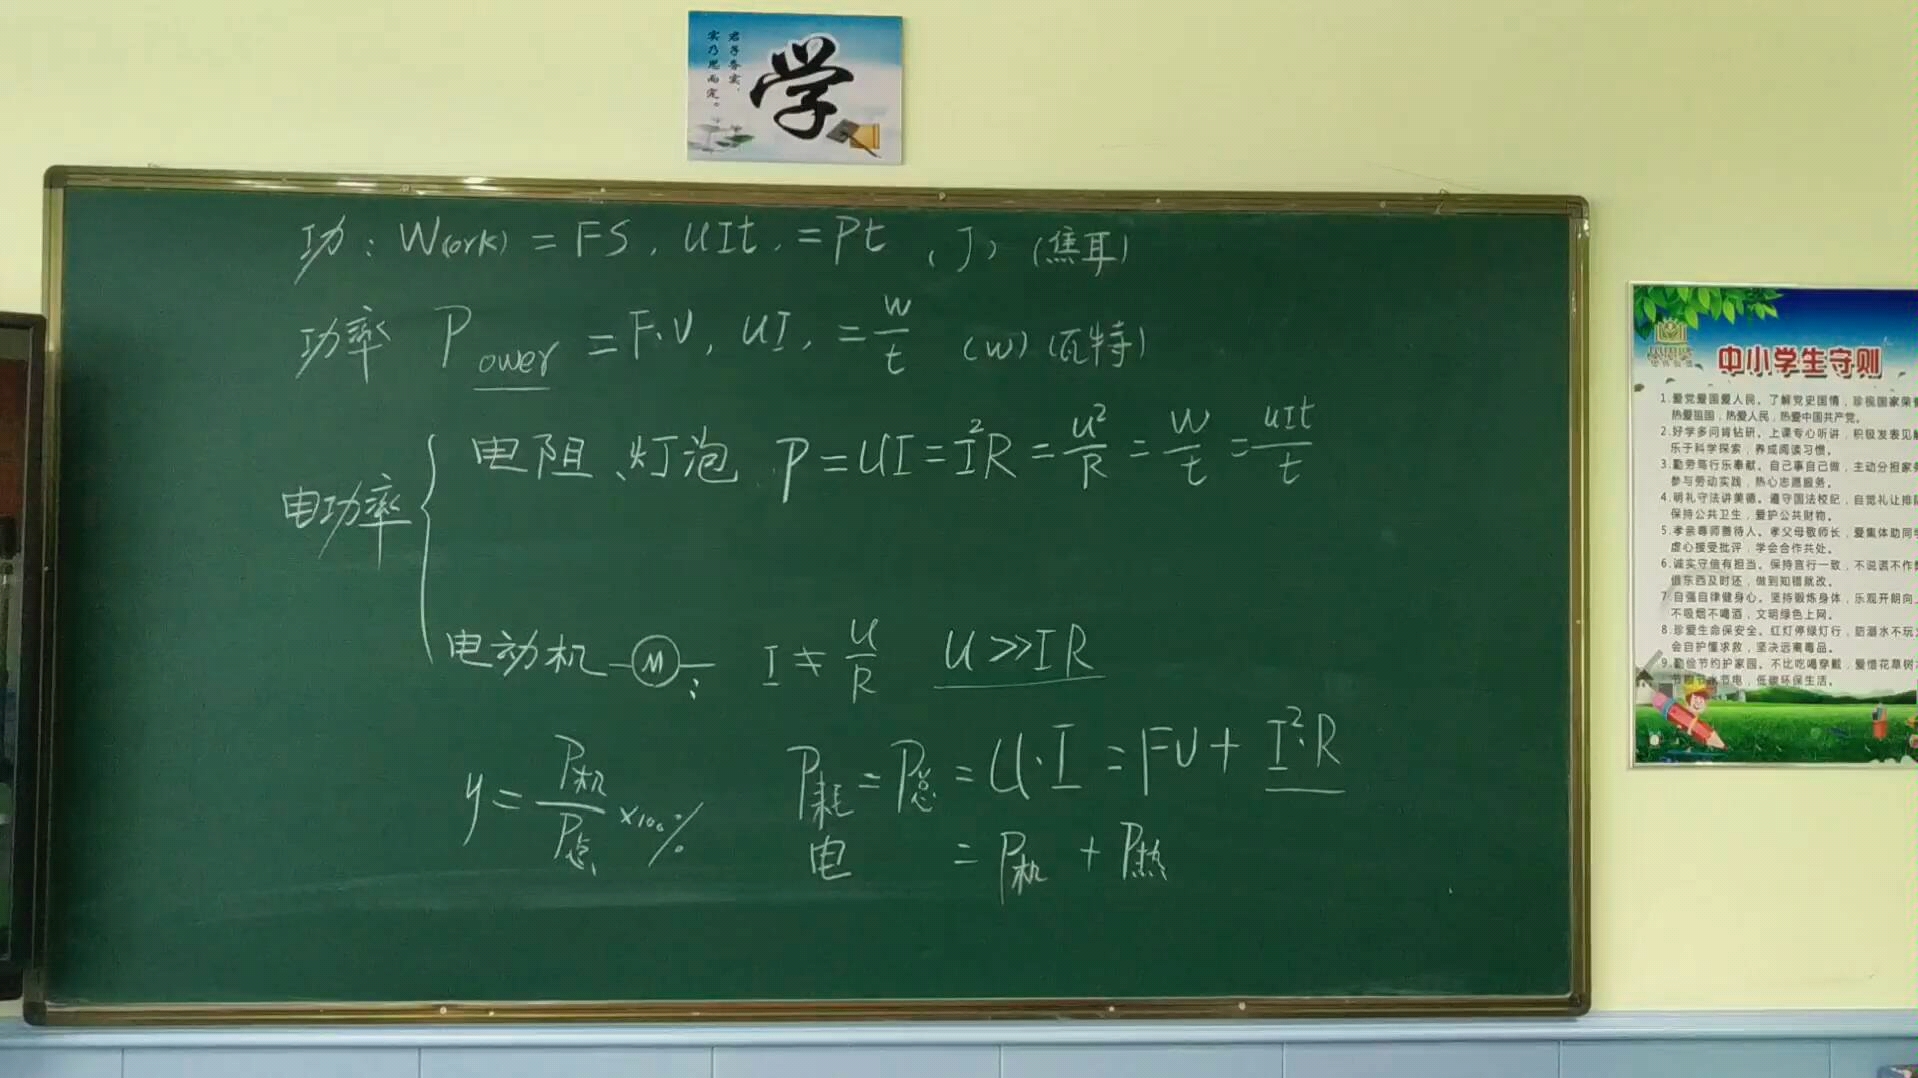 学
君子务实,
实乃思而定。
功：W(ork) = FS, UIt, = Pt (J) (焦耳)
功率 Power = F·V, UI, = W/t (W) (瓦特)
电功率
电阻、灯泡 P = UI = I²R = U²/R = W/t = UIt/t
电动机 M : I ≠ U/R U >> IR
y = P机/P总 ×100% P耗 = P总 = U·I = FV + I²·R
电 = P机 + P热
中小学生守则
1.爱党爱国爱人民。了解党史国情，珍视国家荣
热爱祖国，热爱人民，热爱中国共产党。
2.好学多问肯钻研。上课专心听讲，积极发表见
乐于科学探索，养成阅读习惯。
3.勤劳笃行乐奉献。自己事自己做，主动分担家
参与劳动实践，热心志愿服务。
4.明礼守法讲美德。遵守国法校纪，自觉礼让排
保持公共卫生，爱护公共财物。
5.孝亲尊师善待人。孝父母敬师长，爱集体助同
虚心接受批评，学会合作共处。
6.诚实守信有担当。保持言行一致，不说谎不作
借东西及时还，做到知错就改。
7.自强自律健身心。坚持锻炼身体，乐观开朗向
不吸烟不喝酒，文明绿色上网。
8.珍爱生命保安全。红灯停绿灯行，防溺水不玩
会自护懂求救，坚决远离毒品。
9.勤俭节约护家园。不比吃喝穿戴，爱惜花草树
节粮节水节电，低碳环保生活。